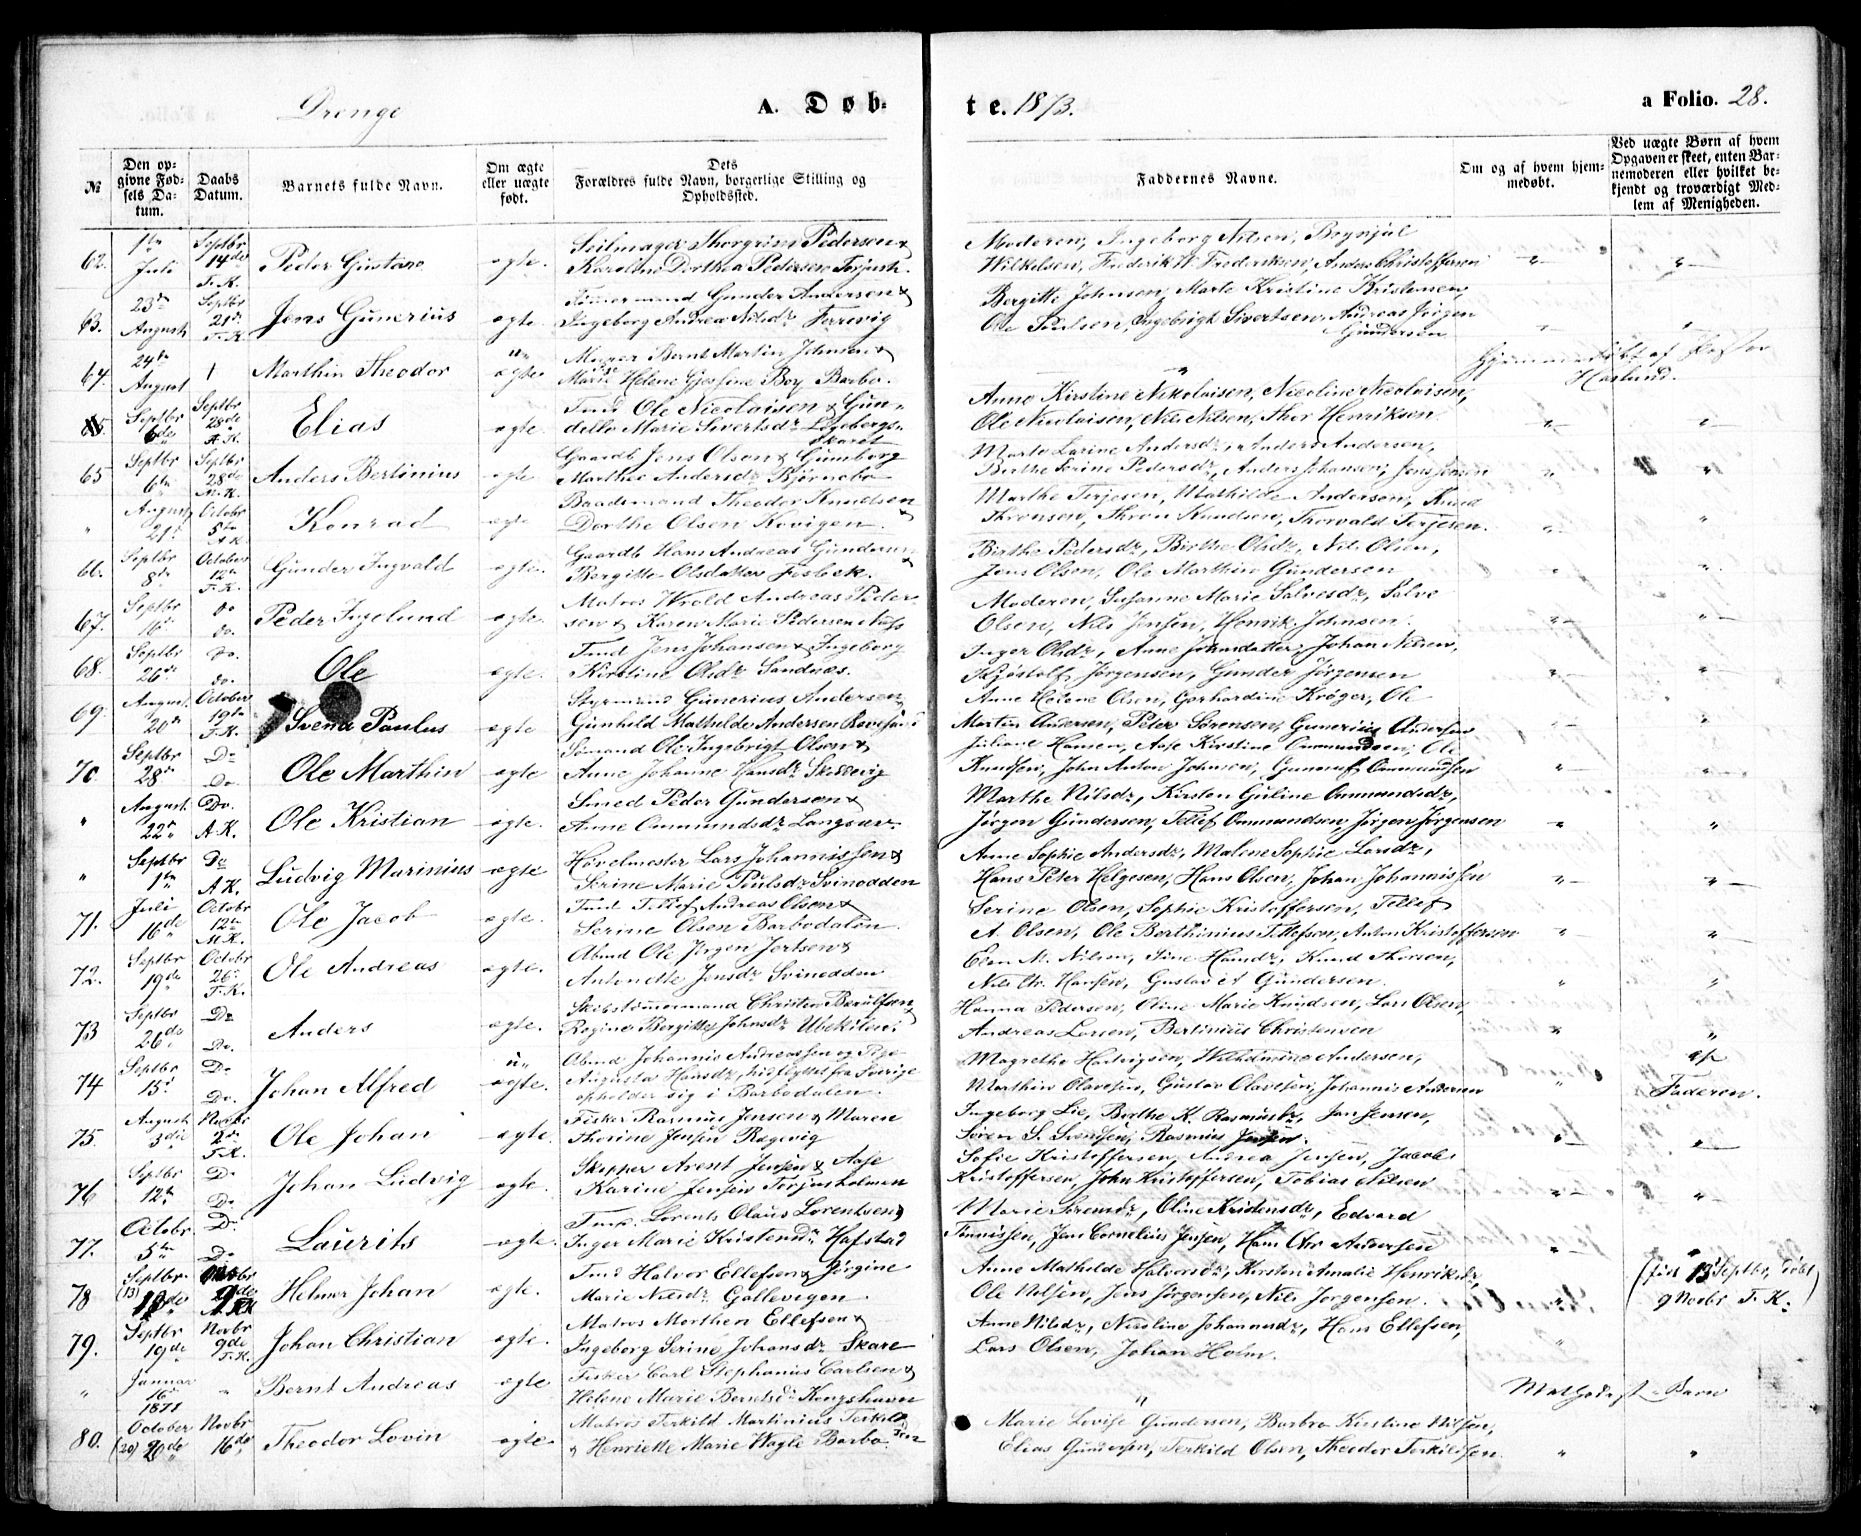 Drenge
A. Døb-
te. 1873.
a Folio. 28.
№
Den opgivne Fødsels Datum.
Daabs Datum.
Barnets fulde Navn.
Om ægte eller uægte født.
Dets Forældres fulde Navn, borgerlige Stilling og Opholdssted.
Faddernes Navne.
Om og af hvem hjemmedøbt.
Ved uægte Børn af hvem Opgaven er skeet, enten Barnemoderen eller hvilket bekjendt og troværdigt Medlem af Menigheden.
62. 1ste Juli Septbr 14de F. K. Peder Gustav ægte. Seilmager Thorgrim Pedersen & Karoline Dorthea Pedersen Moderen, Ingeborg Nilsen, Frederik W. Frederiksen, Anders Christoffersen
63. 23de August Septbr 21de F. K. Jens Gunerius ægte. Tømmermand Gunder Andersen & Ingeborg Andrea Nilsdr Færevig Bergitte Johnsen, Marte Kristine Kristensen, Ole Paulsen, Ingebrigt Sivertsen, Andreas Jörgen Gundersen
64. 24de August Marthin Theodor u, ægte. Murer Bernt Martin Johnsen & Helene Boy Barbo. Hjemmedöbt af Haslund.
Septbr 6te Septbr 28de A. K. Elias ægte. Tmd Ole Nicolaisen & Gundelle Marie Sivertsdr Anne Kirstine Nikolaisen, Nicoline Nicolaisen, Ole Nicolaisen, Nils Nilsen, Thor Henriksen
65 Septbr 6te Septbr 28de M. K. Anders Bertinius ægte Gaardb Jens Olsen & Gunborg Marthie Andersdr Björnebo Marte Larine Andersdr, Anders Andersen, Birthe Serine Pedersdr, Anders Johansen, Jens Jensen
" August 21de Octobr 5te A K Konrad ægte Theodor Knudsen & Dorthe Olsen Kovigen. Marthe Terjesen, Mathilde Andersen, Knud Thronsen, Thron Knudsen, Thorvald Terjesen.
66. Septbr 8de October 12te F. K. Gunder Ingvald ægte. Gaardb Hans Andreas Gundersen & Bergitte Olsdatter Fesbek. Birthe Pedersdr, Birthe Olsdr, Nils Olsen, Jens Olsen, Ole Marthin Gundersen
67. Septbr 16de do do. Peder Ingelund ægte. Matros Wrold Andreas Pedersen & Karen Marie Pedersen Moderen, Susanne Marie Salvesdr, Salve Olsen, Nils Jensen, Henrik Johnsen.
68. Septbr 26de Do. do. Ole ægte. Tmd Jens Johansen & Ingeborg Kirstine Olsdr Sandnes. Inger Olsdr, Anne Johnsdatter, Johan Nilsen, Jörgensen, Gunder Jörgensen
69. August 20de October 19de F. K. Svend Paulus ægte Styrmand Gunerius Andersen Gunhild Mathilde Andersen Anne Helene Olsen, Gerhardine Kröger, Ole Martin Andersen, Peter Sörensen, Gunerius Andersen
70 Septbr 28de Do Do. Ole Marthin ægte Sömand Ole Ingebrigt Olsen & Anne Johanne Hansdr Skillevig Juliane Hansen, Aase Kirstine Ommundsen, Ole Knudsen, John Anton Johnsen, Ommundsen
" August 22de Do. A K. Ole Kristian ægte. Smed Peder Gundersen & Anne Ommundsdr Langsæv Marthe Nilsdr, Kirsten Guline Ommundsdr, Jörgen Gundersen, Tellef Ommundsen, Jörgen Jörgensen
" Septbr 1ste Do A. K. Ludvig Marinius ægte Hovelmester Lars Johannissen & Serine Marie Paulsdr Svinodden Anne Sophie Andersdr, Malene Sophie Larsdr, Hans Peter Helgesen, Hans Olsen, Johan Johannissen
71. Juli 16de Octobr 12te M. K. Ole Jacob ægte. Tmd Tellef Andreas Olsen & Serine Olsen Barbodalen. Serine Olsen, Sophie Kristoffersen, Tellef A. Olsen, Ole Berthinius Tellefsen, Anton Kristoffersen
72. Septbr 19de Octobr 26de F. K. Ole Andreas ægte. Abmd Ole Jörgen & Antonette Jensdr Svinodden Elen M. Nilsen, Sine Hansdr, Knud Thorsen, Nils Chr. Hansen, Gustav A Gundersen.
73 Septbr 26de Do Do. Anders ægte. Skibstömmermand Christen & Regine Bergitte Johnsdr Ubekilen Hanna Pedersen, Oline Marie Knudsen, Lars Olsen, Andreas Larsen, Bertinius Christensen
74 Septbr 15de Do Do. Johan Alfred u, ægte. Abmd Johannis Andreassen og Pige Augusta Hansdr, hidflyttet fra Sverige opholder sig i Barbodalen. Magrethe Hartvigsen, Wilhelmine Andersen, Marthin Olavesen, Gustav Olavesen, Johannis Andersen af Faderen.
75. August 3die Novbr 2de F. K. Ole Johan ægte. Fisker Rasmus Jensen & Maren Thorine Jensen Rægevig Ingeborg Lie, Birthe K. Rasmusdr, Jan Jensen, Sören S. Svendsen, Rasmus Jensen.
76 Septbr 12te Do Do Johan Ludvig ægte. Skipper Arent Jensen & Aase Karine Jensen Torjusholmen Sofie Kristoffersen, Andrea Jensen, Jacob Kristoffersen, John Kristoffersen, Tobias Nilsen
77. October 5te Do. Do Laurits ægte. Tmd. Lorents Olaus Lorentsen & Inger Marie Kristensdr Hafstad Marie Sörensdr, Oline Kristensdr, Edvard Tönnissen, Jens Cornelius Jensen, Hans Chr Andersen
78 Septbr. (13) 13de Novbr 9de Helmer Johan ægte. Tmd Halvor Ellefsen & Jörgine Marie Nilsdr Gallevigen Anne Mathilde Halvorsdr, Kirsten Amalie Henriksdr, Ole Nilsen, Jens Jörgensen, Nils Jörgensen. (född 13 Septbr, döbt 9 Novbr F. K.)
79. Septbr 19de Novbr 9de F. K. Johan Christian ægte. Matros Morthen Ellefsen & Ingeborg Serine Johansdr Skare Anne Nilsdr, Nicoline Johannesdr, Hans Ellefsen, Lars Olsen, Johan Holm.
" Januar 16de 1871 " Bernt Andreas ægte Fisker Carl Stephanius Carlsen & Helene Marie Berntsdr Kongshavn " Methodist-Barn
80. October (20) 20de Novbr 16de Theodor Lovin ægte Matros Terkild Martinius Terkildsen & Henriette Marie Wagle Barbo Marie Lovise Gundersen, Barbro Kirstine Nilsen, Elias Gundersen, Terkild Olsen, Theodor Terkildsen. " "